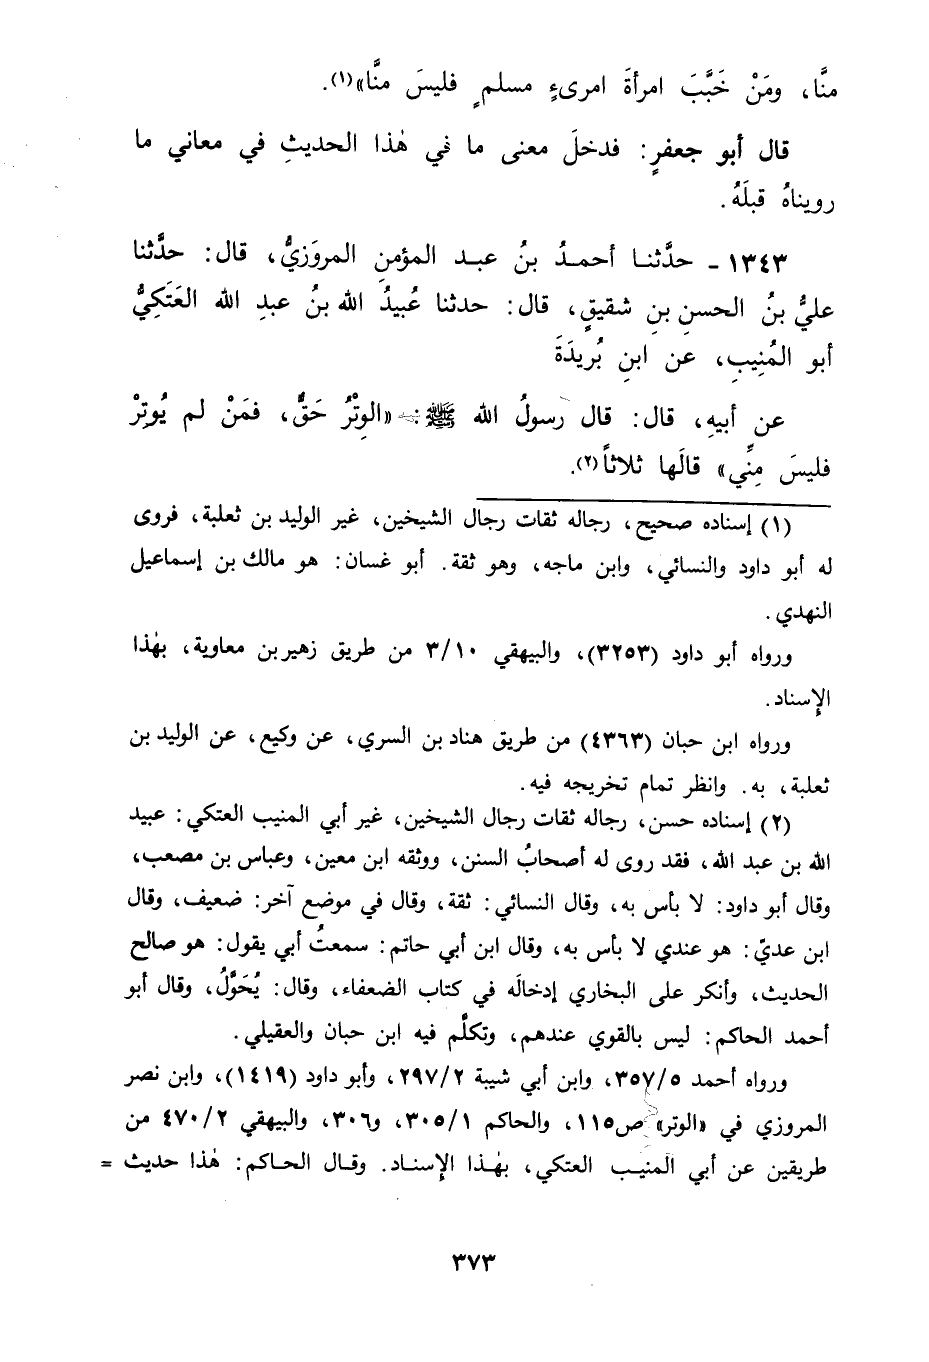 منَّا، ومَنْ خَبَّبَ امرأةَ امرىءٍ مسلمٍ فليسَ منَّا»(١).
قال أبو جعفرٍ: فدخلَ معنى ما في هٰذا الحديثِ في معاني ما
رويناهُ قبلَهُ.
١٣٤٣ - حدَّثنا أحمدُ بنُ عبد المؤمنِ المروَزيُّ، قال: حدَّثنا
عليُّ بنُ الحسنِ بنِ شقيقٍ، قال: حدثنا عُبيدُ الله بنُ عبدِ الله العَتَكِيُّ
أبو المُنِيبِ، عن ابنِ بُريدَةَ
عن أبيهِ، قال: قال رَسولُ الله ﷺ: «الوِتْرُ حَقٌّ، فمَنْ لم يُوتِرْ
فليسَ مِنِّي» قالَها ثلاثاً(٢).
(١) إسناده صحيح، رجاله ثقات رجال الشيخين، غير الوليد بن ثعلبة، فروى
له أبو داود والنسائي، وابن ماجه، وهو ثقة. أبو غسان: هو مالك بن إسماعيل
النهدي.
ورواه أبو داود (٣٢٥٣)، والبيهقي ٣/١٠ من طريق زهير بن معاوية، بهٰذا
الإسناد.
ورواه ابن حبان (٤٣٦٣) من طريق هناد بن السري، عن وكيع، عن الوليد بن
ثعلبة، به. وانظر تمام تخريجه فيه.
(٢) إسناده حسن، رجاله ثقات رجال الشيخين، غير أبي المنيب العتكي: عبيد
الله بن عبد الله، فقد روى له أصحابُ السنن، ووثقه ابن معين، وعباس بن مصعب،
وقال أبو داود: لا بأس به، وقال النسائي: ثقة، وقال في موضع آخر: ضعيف، وقال
ابن عديّ: هو عندي لا بأس به، وقال ابن أبي حاتم: سمعتُ أبي يقول: هو صالح
الحديث، وأنكر على البخاري إدخالَه في كتاب الضعفاء، وقال: يُحَوَّلُ، وقال أبو
أحمد الحاكم: ليس بالقوي عندهم، وتكلَّم فيه ابن حبان والعقيلي.
ورواه أحمد ٣٥٧/٥، وابن أبي شيبة ٢٩٧/٢، وأبو داود (١٤١٩)، وابن نصر
المروزي في «الوتر» ص١١٥، والحاكم ٣٠٥/١، و٣٠٦، والبيهقي ٤٧٠/٢ من
طريقين عن أبي المنيب العتكي، بهٰذا الإسناد. وقال الحاكم: هٰذا حديث =
٣٧٣